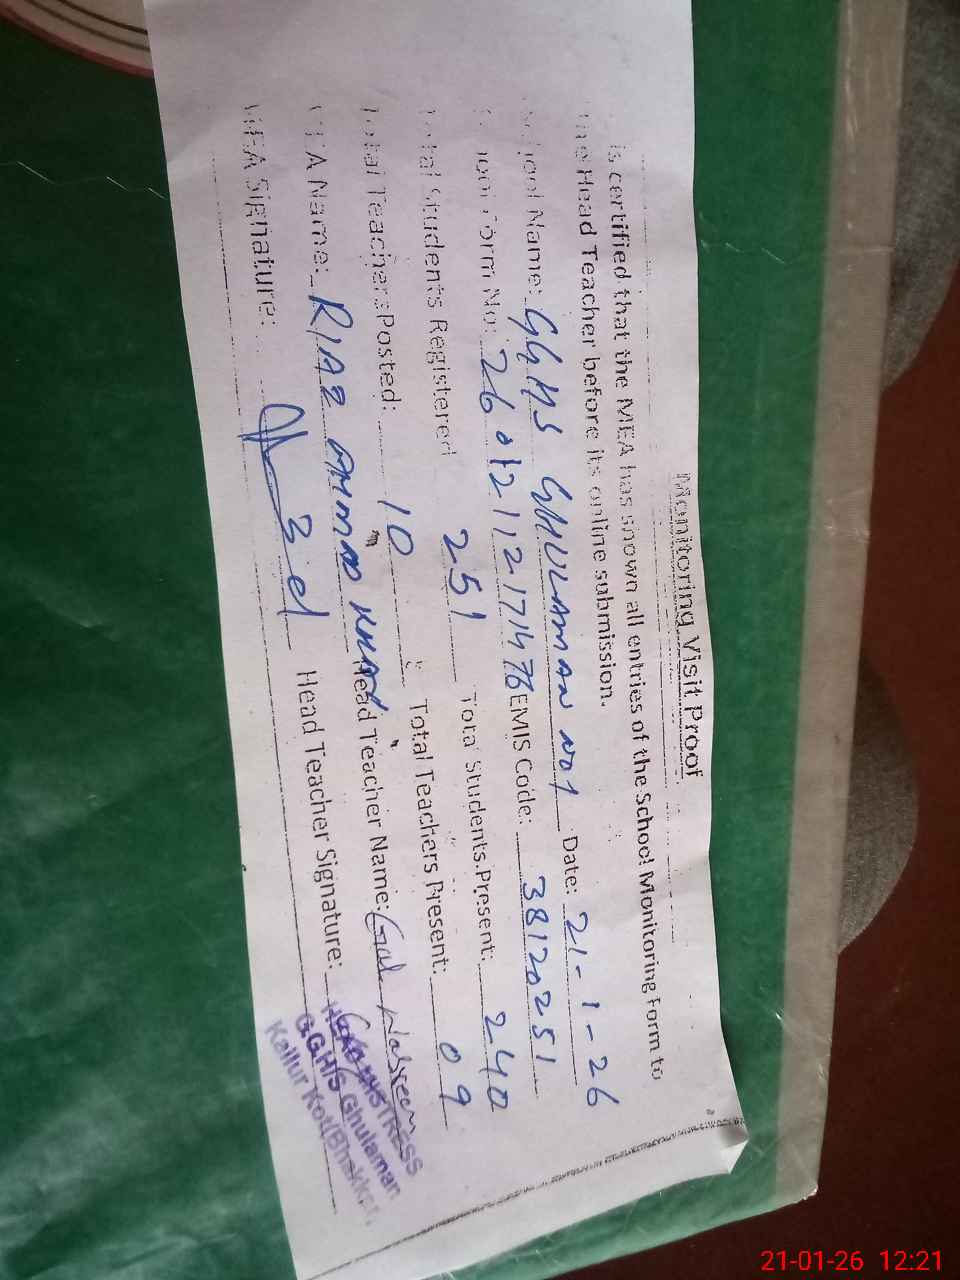 Monitoring Visit Proof
is certified that the MEA has shown all entries of the School Monitoring Form to
the Head Teacher before its online submission.
School Name: GGHS GHULAMAN NO1 Date: 21-1-26
Form No: EMIS Code: 38120251
Total Students Registered 251 Total Students Present: 240
Total Teachers Posted: 10 Total Teachers Present: 09
MEA Name: RIAZ AHMAD KHAN Head Teacher Name: Gul Nasreen
MEA Signature: Head Teacher Signature:
HEAD MISTRESS
G.G.H/S Ghulaman
Kallur Kot(Bhakkar)
21-01-26 12:21